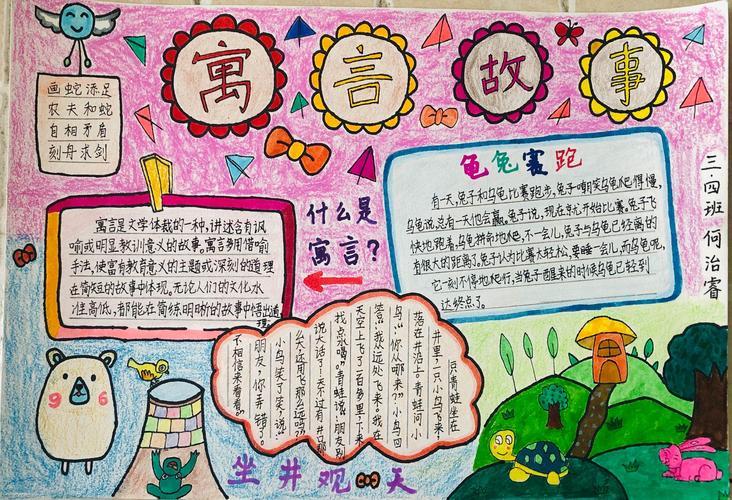 寓言故事
画蛇添足
农夫和蛇
自相矛盾
刻舟求剑
龟兔赛跑
有一天,兔子和乌龟比赛跑步,兔子嘲笑乌龟爬得慢,
乌龟说,总有一天他会赢。兔子说,现在就开始比赛。兔子飞
快地跑着,乌龟拼命地爬,不一会儿,兔子与乌龟已轻离的
有很大的距离了。兔子认为比赛太轻松,要睡一会儿,而乌龟呢,
它一刻不停地爬行,当兔子醒来的时候乌龟已轻到
达终点了。
三·四班何治睿
什么是
寓言?
寓言是文学体裁的一种,讲述含有讽
喻或明显教训意义的故事。寓言多用借喻
手法,使富有教育意义的主题或深刻的道理
在简短的故事中体现,无论人们的文化水
准高低,都能在简练明晰的故事中悟出道
理。
一只青蛙坐在
井里,一只小鸟飞来,
落在井沿上。青蛙问小
鸟:“你从哪来?”小鸟回
答:“我从远处飞来。我在
天空上飞了一百多里,下来
找点水喝。”青蛙说:“朋友,别
说大话了!天不过有井口那
么大,还用飞那么远吗?”
小鸟笑了笑,说:“
朋友,你弄错了。
不相信来看看。”
9 6
坐井观天